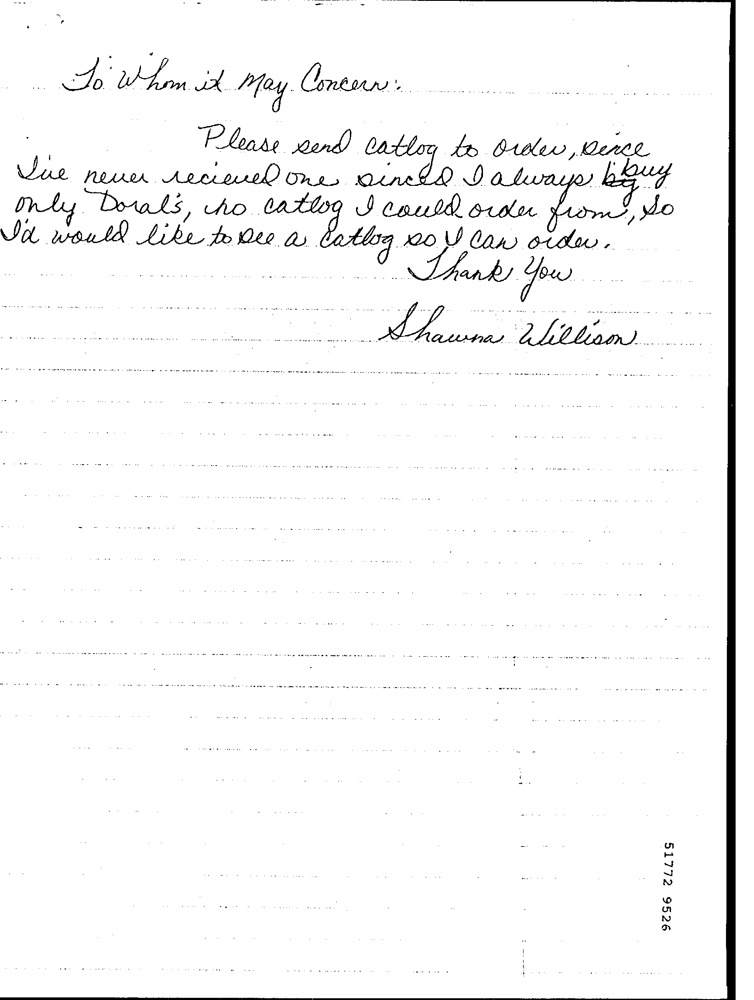 To Whom it May Concern:
Please send catlog to order, since
I've never recieved one sinced I always by buy
only Doral's, no catlog I could order from, so
I'd would like to see a catlog so I can order.
Thank You
Shawna Willison
51772 9526